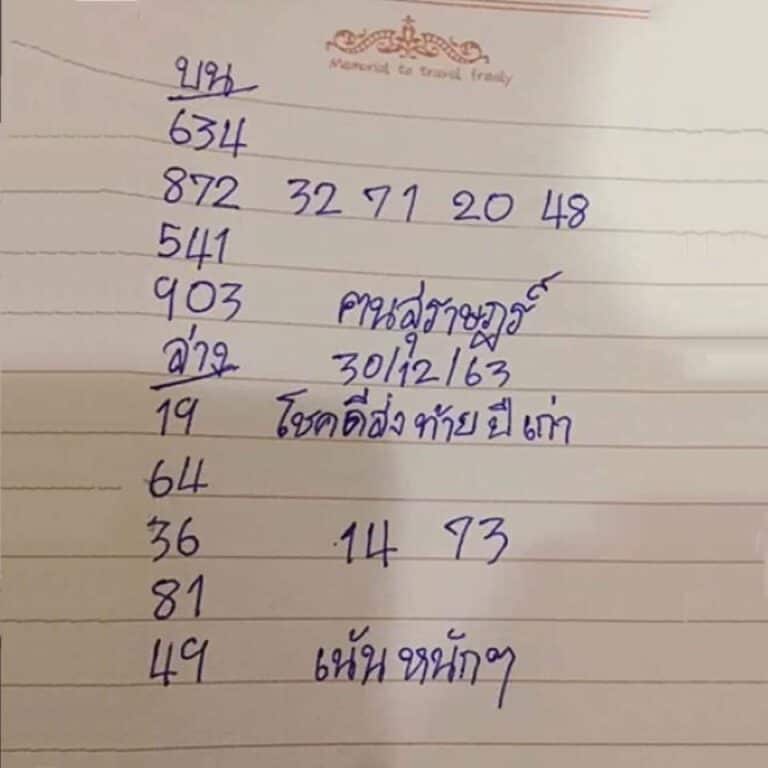 Memorial to travel freely
บน
634
872 32 71 20 48
541
903 คนสุราษฎร์
ล่าง 30/12/63
19 โชคดีส่งท้ายปีเก่า
64
36 14 73
81
49 เน้นหนักๆ